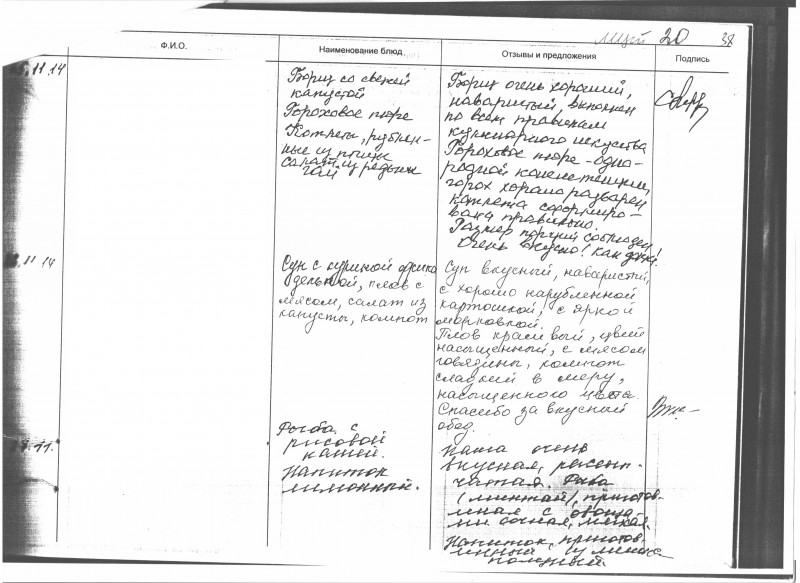 лицей 20 38
Ф.И.О. Наименование блюд Отзывы и предложения Подпись
.11.14
Борщ со свежей
капустой
Гороховое пюре
Котлеты, рублен-
ные из птицы
салат из редьки
Борщ очень хороший,
наваристый, выполнен
по всем правилам
кулинарного искусства
Гороховое пюре - одно-
родной консистенции,
горох хорошо разварен
котлета сформиро-
вана правильно.
Размер порций соблюден
Очень вкусно! Как дома!
.11.14
Суп с куриной фрика
делькой, плов с
мясом, салат из
капусты, компот
Суп вкусный, наваристый,
с хорошо нарубленной
картошкой, с яркой
морковкой.
Плов красивый, цвет
насыщенный, с мясом
говядины, компот
сладкий в меру,
насыщенного цвета.
Спасибо за вкусный
обед.
.11.
Рыба с
рисовой
кашей.
Напиток
лимонный.
Каша очень
вкусная, рассып-
чатая. Рыба
(минтай), приготов-
леная с овоща-
ми сочная, мягкая.
Напиток, приготов-
ленный из лимона
полезный